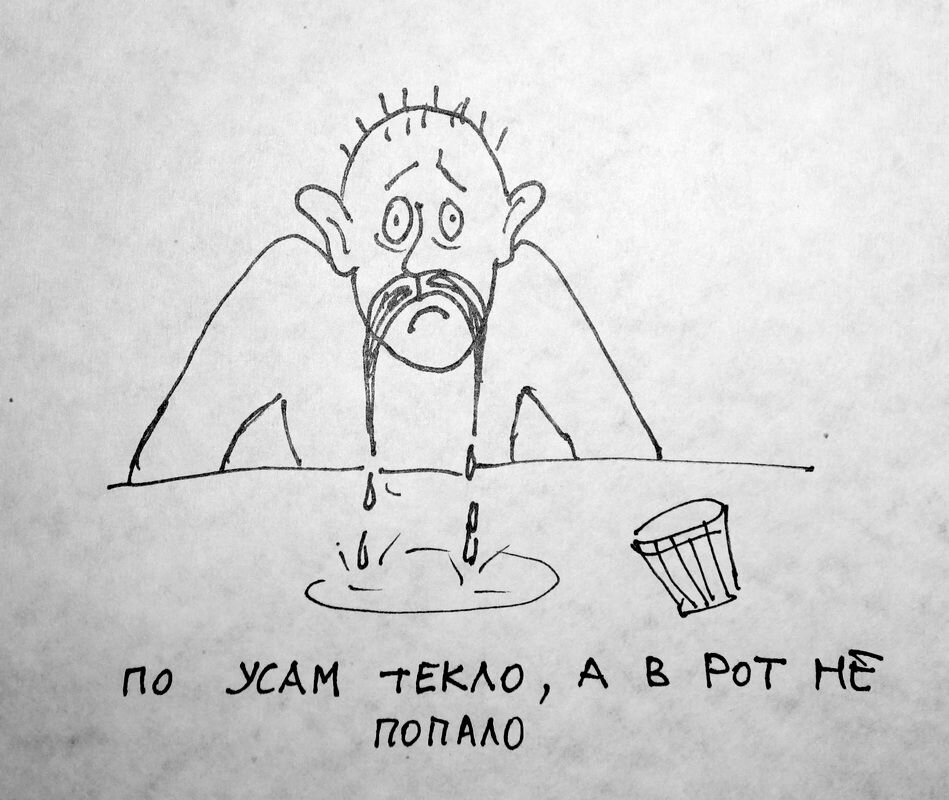 ПО УСАМ ТЕКЛО, А В РОТ НЕ
ПОПАЛО